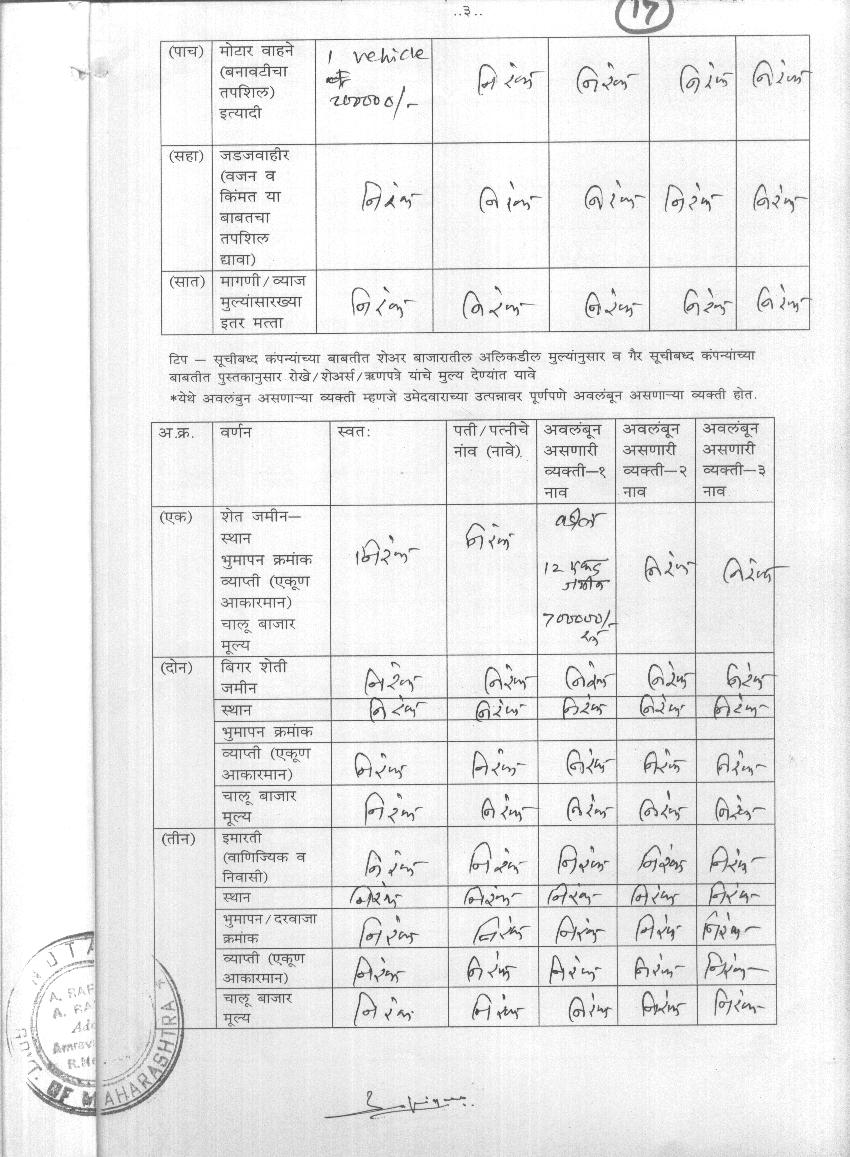 ..३..
17
(पाच) मोटार वाहने (बनावटीचा तपशिल) इत्यादी 1 vehicle 200000/- निरंक निरंक निरंक निरंक
(सहा) जडजवाहीर (वजन व किंमत या बाबतचा तपशिल द्यावा) निरंक निरंक निरंक निरंक निरंक
(सात) मागणी/व्याज मुल्यांसारख्या इतर मत्ता निरंक निरंक निरंक निरंक निरंक
टिप – सूचीबध्द कंपन्यांच्या बाबतीत शेअर बाजारातील अलिकडील मुल्यांनुसार व गैर सूचीबध्द कंपन्यांच्या
बाबतीत पुस्तकानुसार रोखे/शेअर्स/ऋणपत्रे यांचे मुल्य देण्यांत यावे
*येथे अवलंबुन असणाऱ्या व्यक्ती म्हणजे उमेदवाराच्या उत्पन्नावर पूर्णपणे अवलंबून असणाऱ्या व्यक्ती होत.
अ.क्र. वर्णन स्वतः पती/पत्नीचे नांव (नावे) अवलंबून असणारी व्यक्ती–१ नाव अवलंबून असणारी व्यक्ती–२ नाव अवलंबून असणारी व्यक्ती–३ नाव
(एक) शेत जमीन– स्थान भुमापन क्रमांक व्याप्ती (एकूण आकारमान) चालू बाजार मूल्य निरंक निरंक वडील 12 एकड जमीन 700000/- रु निरंक निरंक
(दोन) बिगर शेती जमीन निरंक निरंक निरंक निरंक निरंक
स्थान निरंक निरंक निरंक निरंक निरंक
भुमापन क्रमांक
व्याप्ती (एकूण आकारमान) निरंक निरंक निरंक निरंक निरंक
चालू बाजार मूल्य निरंक निरंक निरंक निरंक निरंक
(तीन) इमारती (वाणिज्यिक व निवासी) निरंक निरंक निरंक निरंक निरंक
स्थान निरंक निरंक निरंक निरंक निरंक
भुमापन/दरवाजा क्रमांक निरंक निरंक निरंक निरंक निरंक
व्याप्ती (एकूण आकारमान) निरंक निरंक निरंक निरंक निरंक
चालू बाजार मूल्य निरंक निरंक निरंक निरंक निरंक
GOVT. OF MAHARASHTRA